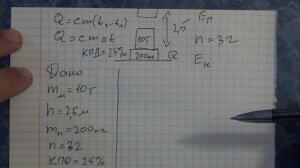 Q = cm(t₂-t₁)
Q = cmΔt
КПД=25%
10т
200кг
2,5
Q
Eп
n = 32
Eк
Дано
mм = 10т
h = 2,5м
mп = 200кг
n = 32
КПД = 25%